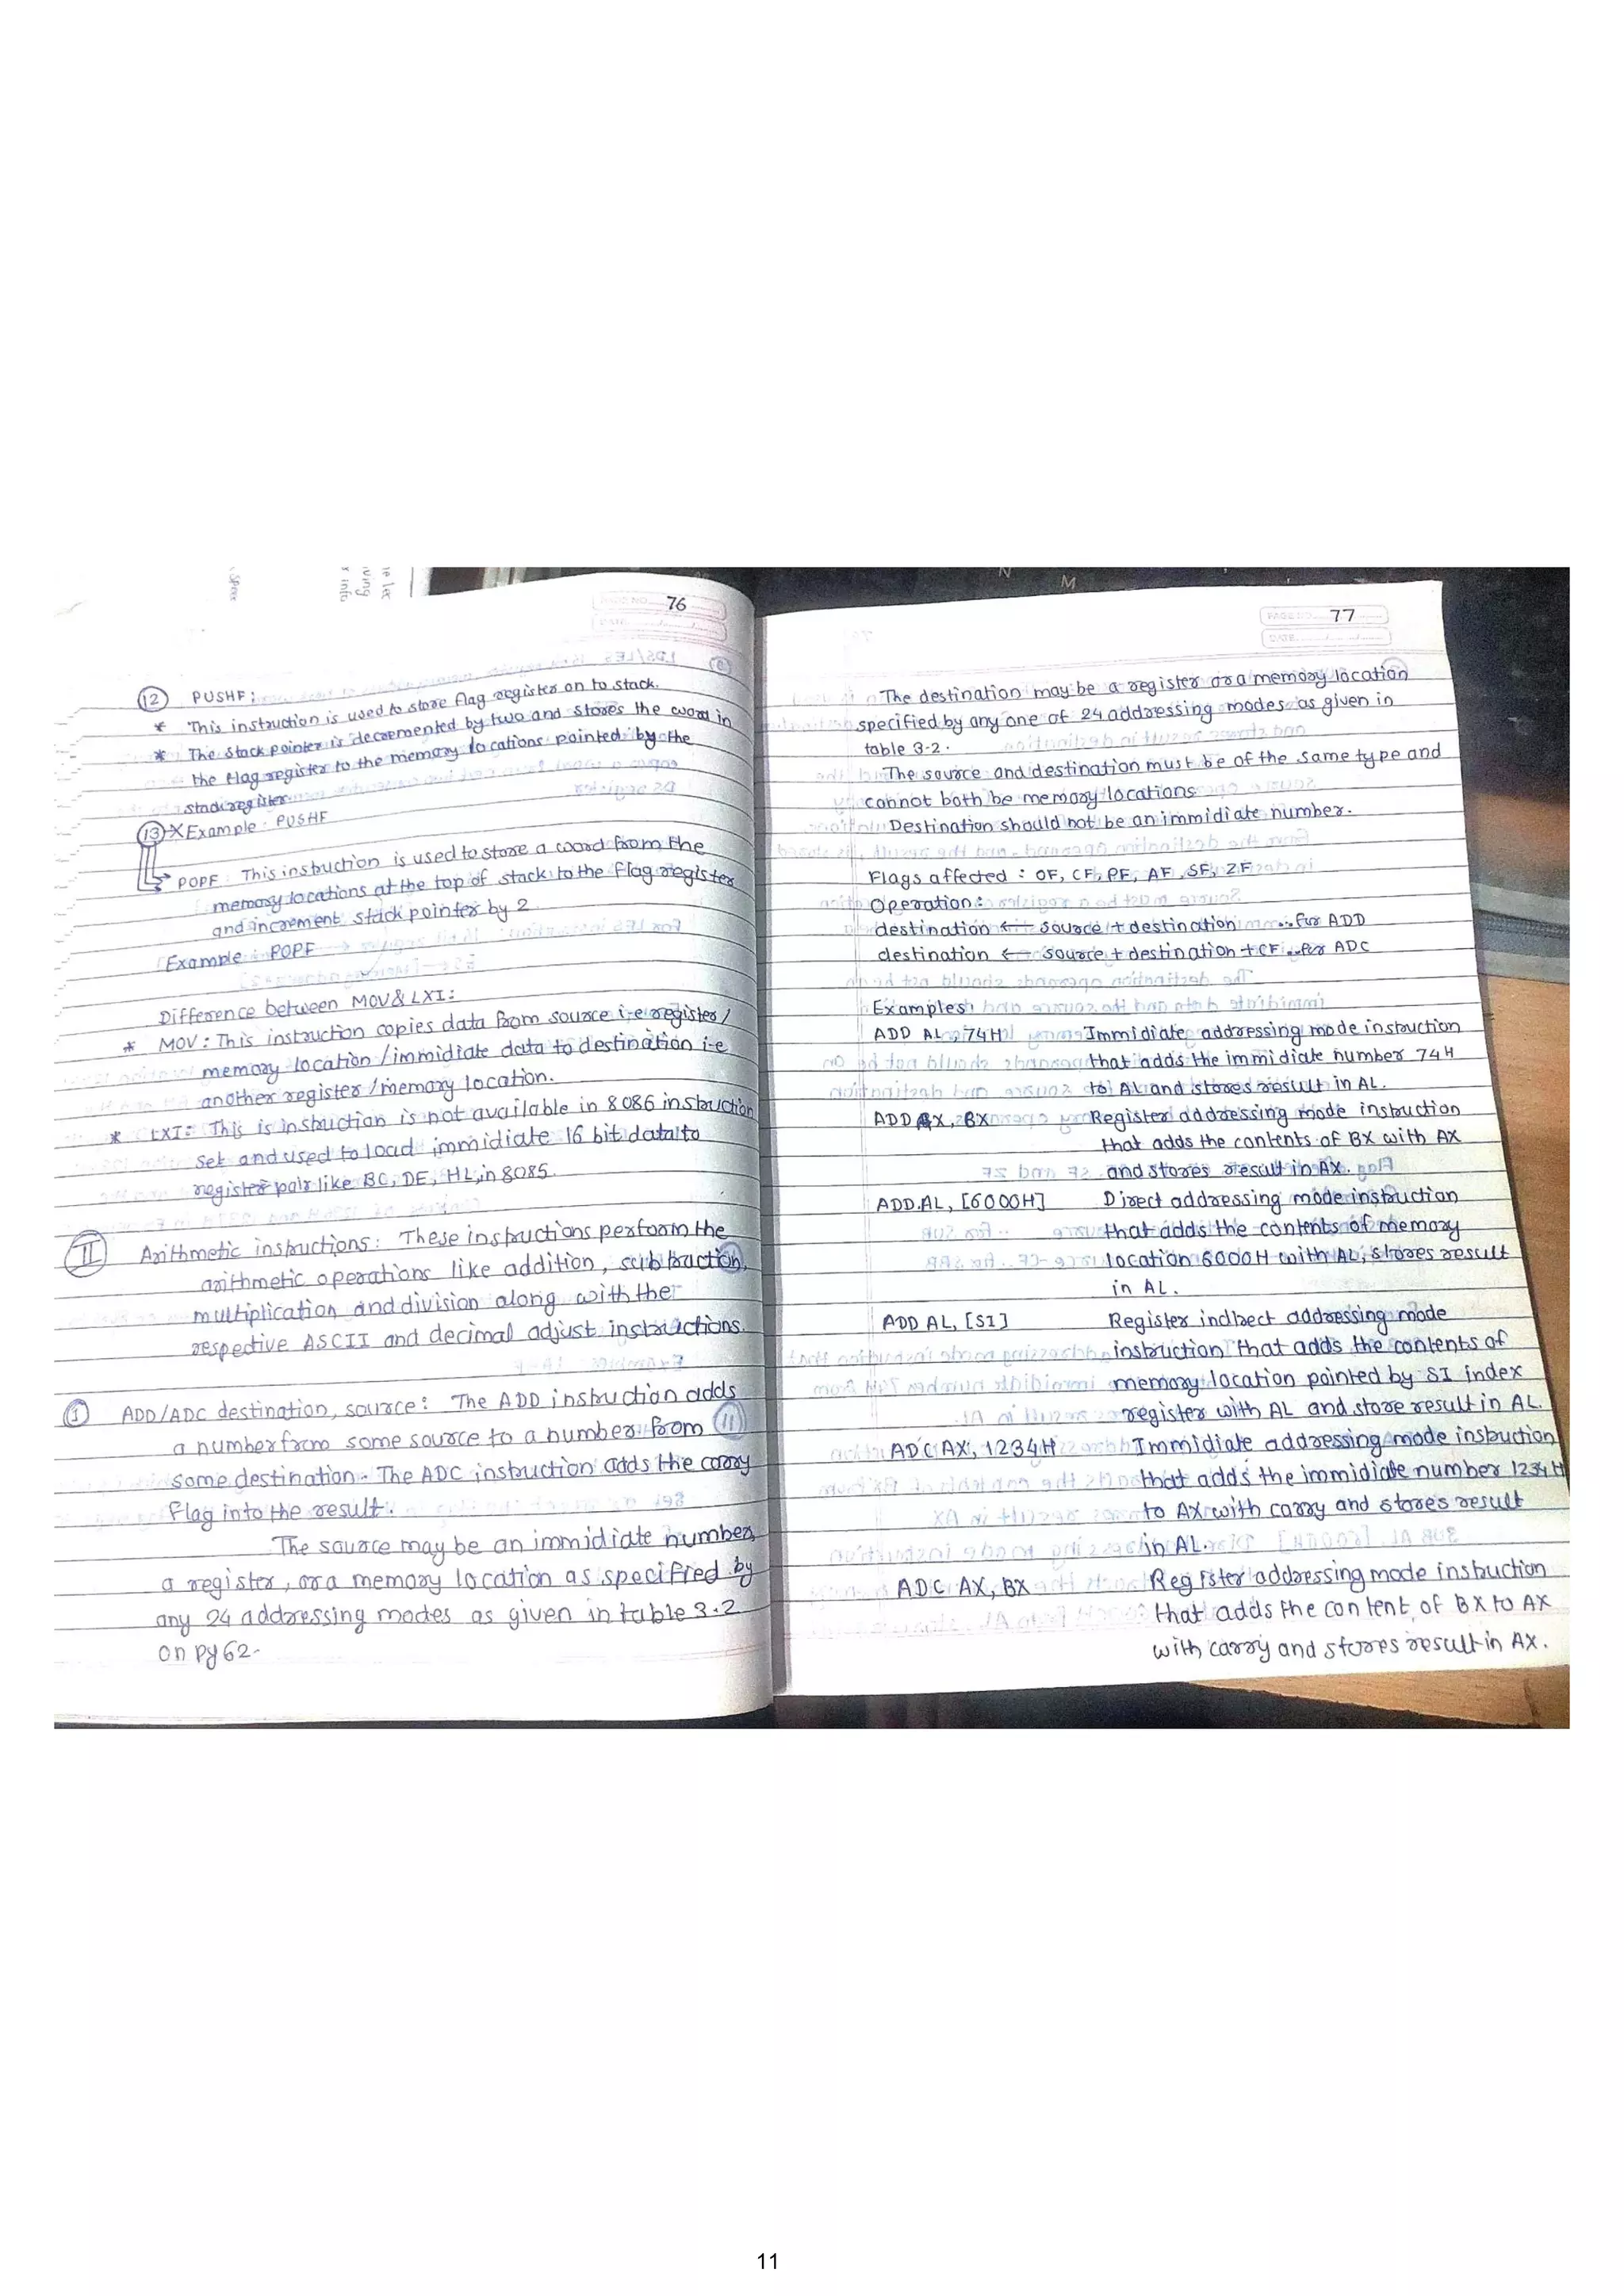 76
12 PUSHF:
* This instruction is used to store flag register on to stack.
* The stack pointer is decremented by two and stores the word in
the flag register to the memory locations pointed by the
stack register
13 * Example: PUSHF
POPF: This instruction is used to store a word from the
memory locations at the top of stack to the flag register
and increment stack pointer by 2
Example: POPF
Difference between MOV & LXI:
* MOV: This instruction copies data from source i-e register/
memory location /immidiate data to destination i-e
another register /memory location.
* LXI: This is instruction is not available in 8086 instruction
set and used to load immidiate 16 bit data to
register pair like BC, DE, HL, in 8085.
II Arithmetic instructions: These instructions perform the
arithmetic operations like addition, subtraction,
multiplication and division along with the
respective ASCII and decimal adjust instructions.
1 ADD/ADC destination, source: The ADD instruction adds
a number from some source to a number from
some destination. The ADC instruction adds the carry
flag into the result.
The source may be an immidiate number,
a register, or a memory location as specified by
any 24 addressing modes as given in table 3.2
on pg 62.
PAGE NO. 77
DATE
The destination may be a register or a memory location
specified by any one of 24 addressing modes as given in
table 3.2.
The source and destination must be of the same type and
cannot both be memory locations
Destination should not be an immidiate number.
Flags affected : OF, CF, PF, AF, SF, ZF
Operation:
destination ← source + destination ... for ADD
destination ← source + destination + CF ... for ADC
Examples
ADD AL, 74H Immidiate addressing mode instruction
that adds the immidiate number 74H
to AL and stores result in AL.
ADD AX, BX Register addressing mode instruction
that adds the contents of BX with AX
and stores result in AX.
ADD AL, [6000H] Direct addressing mode instruction
that adds the contents of memory
location 6000H with AL, stores result
in AL.
ADD AL, [SI] Register indirect addressing mode
instruction that adds the contents of
memory location pointed by SI index
register with AL and store result in AL.
ADC AX, 1234H Immidiate addressing mode instruction
that adds the immidiate number 1234H
to AX with carry and stores result
in AL.
ADC AX, BX Register addressing mode instruction
that adds the content of BX to AX
with carry and stores result in AX.
11